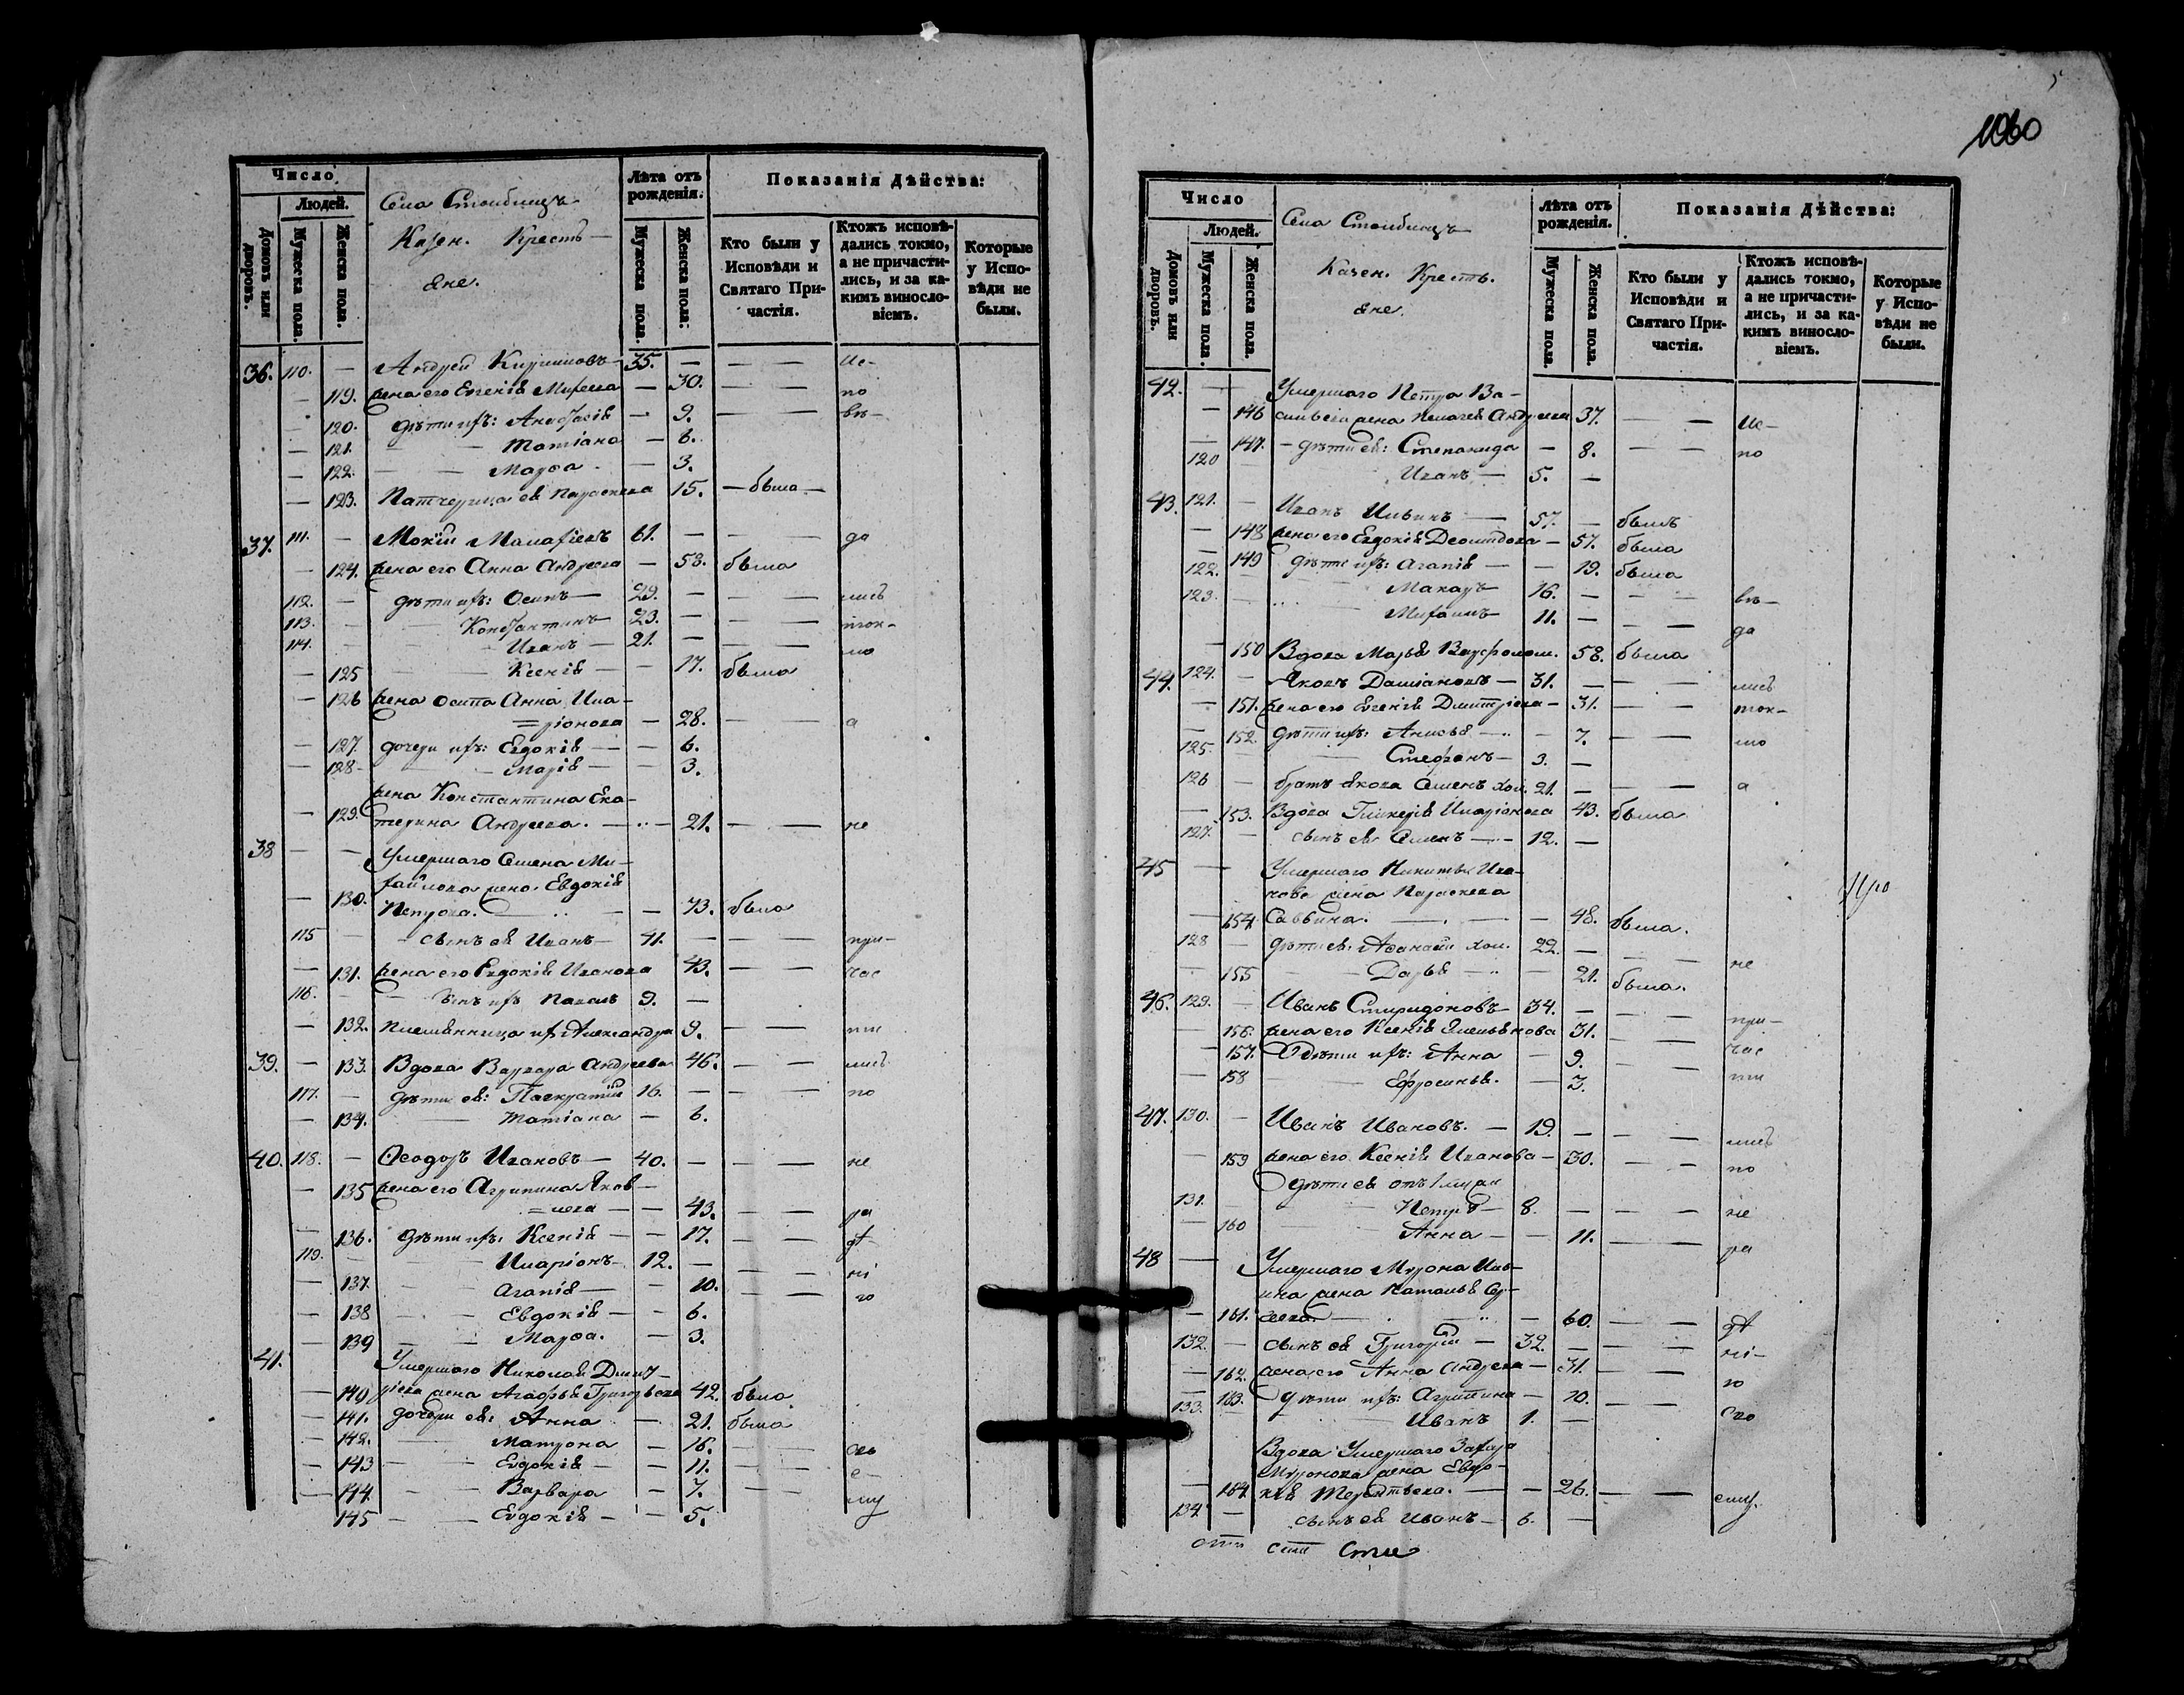 Число
Людей.
Домовъ или дворовъ.
Мужеска пола.
Женска пола.
Села Столбищъ
Казен. Кресть-
яне.
Лѣта отъ рожденія.
Мужеска пола
Женска пола:
Показанія Дѣйства:
Кто были у Исповѣди и Святаго Причастія.
Ктожъ исповѣдались токмо, а не причастились, и за какимъ винословіемъ.
Которые у Исповѣди не были.
36. 110. — Андрей 35. — — — Ис-
— 119. жена его Евгенія — 30. — — по
— 120. дѣти ихъ: Анастасія — 9. — — вѣ-
— 121. — Татіана — 6.
— 122. — — Марѳа — 3.
— 123. Патчерица ея Параскева 15. — была —
37. 111. — Мокій 61. — — — да
— 124. жена его Анна Андреева — 58. была
112. — дѣти ихъ: Осипъ — 29. — — — лись
113. — — Константинъ 23. — — — ток-
114. — — Иванъ — 21. — — — мо
— 125 — — Ксенія — — 17. была
— 126 жена Осипа Анна Ила-
=ріонова — 28. — — а
— 127. дочери ихъ: Евдокія — — 6.
— 128 — — Марія — — 3.
жена Константина Ека-
— 129. терина Андреева. — — 21. — — не
38 — — Умершаго Семена Ми-
хайлова жена Евдокія
— 130. Петрова. — — 73. была
115 — — сынъ ея Иванъ — 41. — — — при-
— 131. жена его Евдокія Иванова 43. — — час
116. — — сынъ ихъ Павелъ 9. —
— 132. Племянница их Александра 9. — — ти
39. — 133. Вдова Варвара Андреева 46. — — лись
117. — дѣти ея: Панкратій 16. — — — по
— 134. — Татіана — 6.
40. 118. — Ѳеодоръ Ивановъ — 40. — — — не
— 135 жена его Агрипина Яков-
=лева — — 43. — — ра
— 136. дѣти ихъ: Ксенія — — 17. — — дѣ
119. — — Иларіонъ — 12. — — — ні
— 137. — — Агапія — — 10. — — ю
— 138 — — Евдокія — — 6.
— 139 — — Марѳа. — 3.
41. Умершаго Николая Дмит-
— 140 ріева жена Агафья Григорьева 42. была
— 141. дочери ея: Анна — 21. была
— 142. — Матрона — 16. — — сво
— 143 — — Евдокія — — 11. — — е-
— 144. — — Варвара — 7. — — му
145 — — Евдокія — — 5.
1060
Число
Людей.
Домовъ или дворовъ.
Мужеска пола.
Женска пола.
Села Столбищъ
Казен. Кресть.
яне.
Лѣта отъ рожденія.
Мужеска пола.
Женска пола.
Показанія Дѣйства:
Кто были у Исповѣди и Святаго Причастія.
Ктожъ исповѣдались токмо, а не причастились, и за какимъ винословіемъ.
Которые у Исповѣди не были.
42. — — Умершаго Петра Ва-
— 146 сильева жена Пелагея Андреева 37. — — Ис-
— 147. — дѣти ея: Степанида — 8. — — по
120 Иванъ — 5. —
43. 121. — Иванъ Ильинъ — 57. — былъ
— 148 жена его Евдокія — 57. была
— 149 дѣти ихъ: Агапія — — 19. была
122. — Макаръ 16. — — — вѣ-
123. — Михаилъ 11. — — — да
— 150 Вдова Марья Варфолом. 58. была
44. 124. — Яковъ Даміановъ — 31. — — — лись
— 151. жена его Евгенія Дмитріева — 31. — — ток-
— 152. дѣти ихъ: — 7. — — мо
125. Стефанъ — 3. —
126 — братъ Якова Семенъ хол. 21. — — — а
— 153. Вдова Гликерія Иларіонова 43. была
127. — сынъ ея Семенъ — 12. —
45 — Умершаго Никиты Ива-
нова жена Параскева
— 154. Саввина. — — 48. была.
128 — дѣти ея: Аѳанасій хол. 22. — — — не
— 155 — Дарья — 21. была.
46. 129. — Иванъ Спиридоновъ — 34. — — — при-
— 156. жена его Ксенія Емельянова 31. — — час
— 157. дѣти ихъ: Анна — 9. — — ти
— 158 — Ефросинья. — 3.
47. 130. — Иванъ Ивановъ. — 19. — — — лись
— 159 жена его Ксенія Иванова — 30. — — по
дѣти ея отъ 1 мужа
131. — Петръ — 8. — — — не
— 160 — Анна — — 11. — — ра
48 — Умершаго Мирона Иль-
ина жена Наталья Сер-
— 161. — — 60. — — дѣ
132. — сынъ ея Григорій — 32. — — — ні-
— 162. жена его Анна Андреева — 31. — — ю
— 163. дѣти ихъ: Агрипина — 10. — — сво
133. — Иванъ 1. —
Вдова Умершаго Захара
Миронова жена Евдо-
— 164. кія — — 26. — — ему.
134. — сынъ ея Иванъ — 6. —